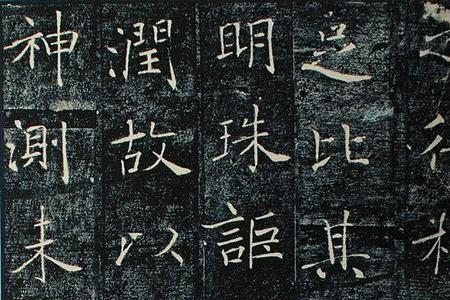 足比其
明珠詎
潤故以
神測未